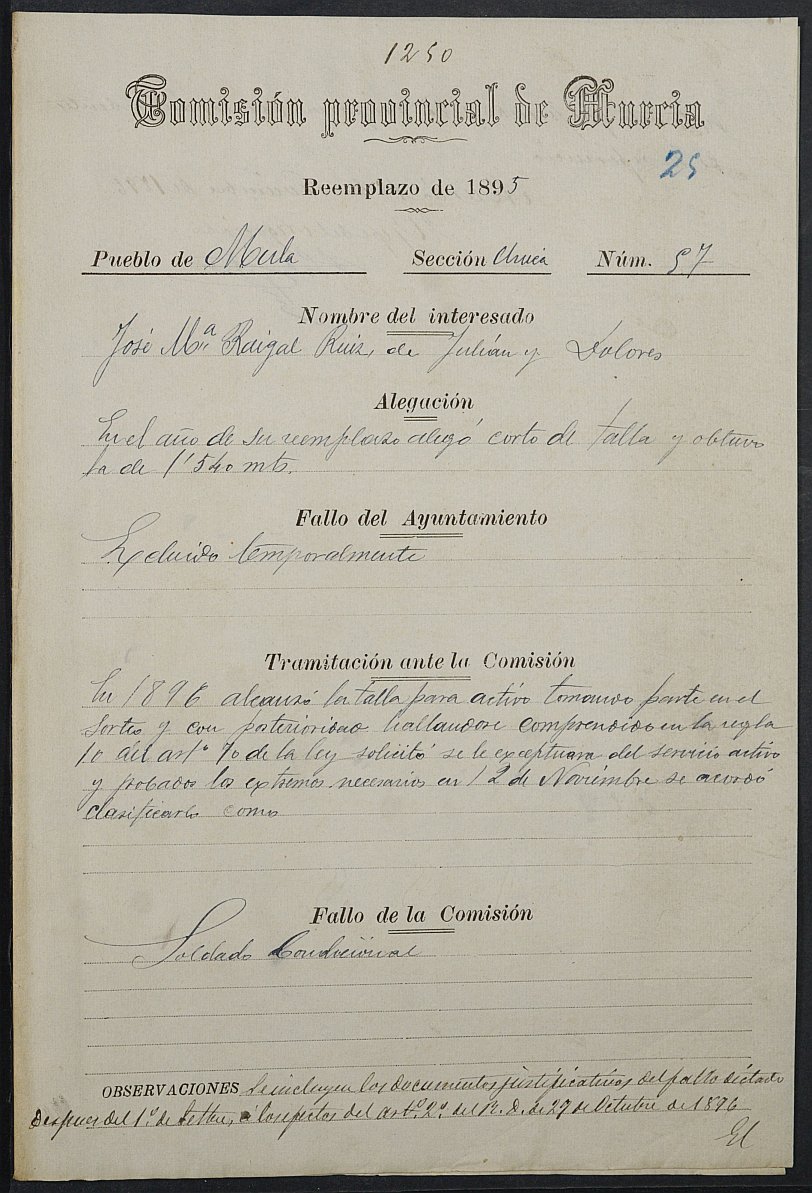 1250
Comisión provincial de Murcia
25
Reemplazo de 1895
Pueblo de Mula Sección Única Núm. 57
Nombre del interesado
José Mª Raigal Ruiz, de Julián y Dolores
Alegación
En el año de su reemplazo alegó corto de talla y obtuvo
la de 1'540 mts.
Fallo del Ayuntamiento
Excluido temporalmente
Tramitación ante la Comisión
En 1896 alcanzó la talla para activo tomando parte en el
sorteo y con posterioridad hallandose comprendido en la regla
10 del artº 70 de la ley solicitó se le exceptuara del servicio activo
y probados los extremos necesarios en 12 de Noviembre se acordó
clasificarlo como
Fallo de la Comisión
Soldado Condicional
OBSERVACIONES Se incluyen los documentos justificativos del fallo dictado
despues del 1º de Setbre, á los efectos del artº 2º del R. D. de 29 de Octubre de 1896